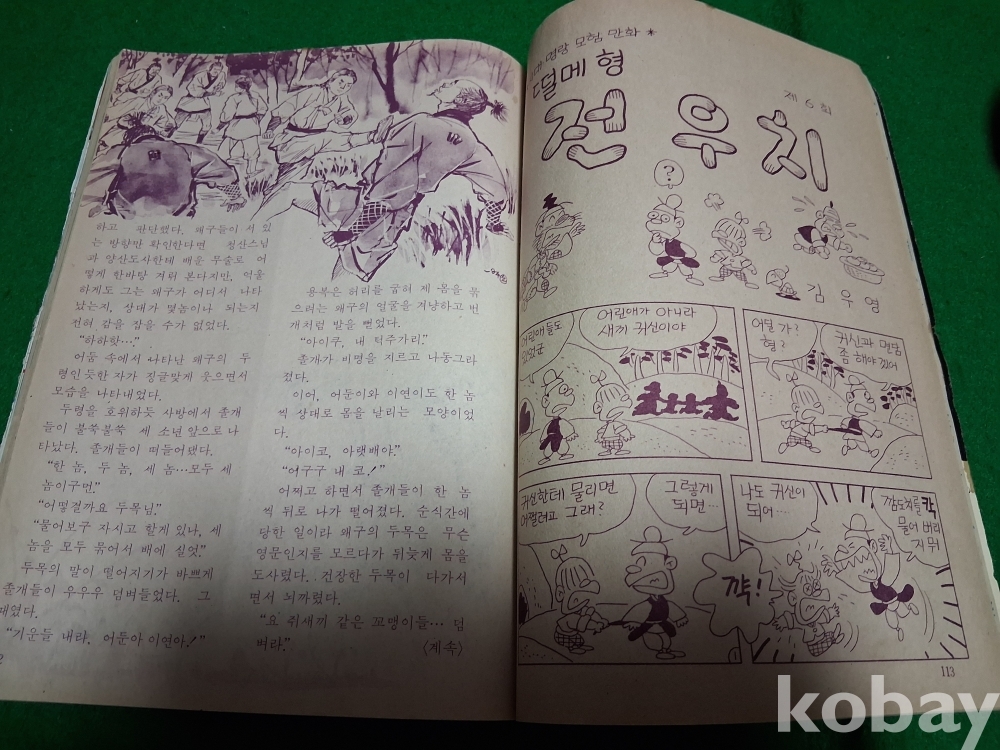 하고 판단했다. 왜구들이 서 있
는 방향만 확인한다면 청산스님
과 양산도사한테 배운 무술로 어
떻게 한바탕 겨뤄 본다지만, 억울
하게도 그는 왜구가 어디서 나타
났는지, 상대가 몇놈이나 되는지
전혀 감을 잡을 수가 없었다.
“하하핫…”
어둠 속에서 나타난 왜구의 두
령인듯한 자가 징글맞게 웃으면서
모습을 나타내었다.
두령을 호위하듯 사방에서 졸개
들이 불쑥불쑥 세 소년 앞으로 나
타났다. 졸개들이 떠들어댔다.
“한 놈, 두 놈, 세 놈…모두 세
놈이구먼.”
“어떻할까요 두목님.”
“물어보구 자시고 할게 있나, 세
놈을 모두 묶어서 배에 실엇.”
두목의 말이 떨어지기가 바쁘게
졸개들이 우우우 덤벼들었다. 그
때였다.
“기운들 내라. 어둔아 이연아!”
용복은 허리를 굽혀 제 몸을 묶
으려는 왜구의 얼굴을 겨냥하고 번
개처럼 발을 뻗었다.
“아이쿠, 내 턱주가리.”
졸개가 비명을 지르고 나동그라
졌다.
이어, 어둔이와 이연이도 한 놈
씩 상대로 몸을 날리는 모양이었
다.
“아이코, 아랫배야.”
“어구구 내 코!”
어쩌고 하면서 졸개들이 한 놈
씩 뒤로 나가 떨어졌다. 순식간에
당한 일이라 왜구의 두목은 무슨
영문인지를 모르다가 뒤늦게 몸을
도사렸다. 건장한 두목이 다가서
면서 뇌까렸다.
“요 쥐새끼 같은 꼬맹이들… 덤
벼라.”
〈계속〉
2
명랑 모험 만화 *
떨메 형
제 6 회
전 우 치
?
김 우 영
어린애들도
있었군
어린애가 아니라
새끼 귀신이야
어딜 가?
형?
귀신과 면담
좀 해야겠어
귀신한테 물리면
어쩔려고 그래?
그렇게
되면…
꺅!
나도 귀신이
되어…
깜도치를 칵
물어 버리
지뭐
113
kobay